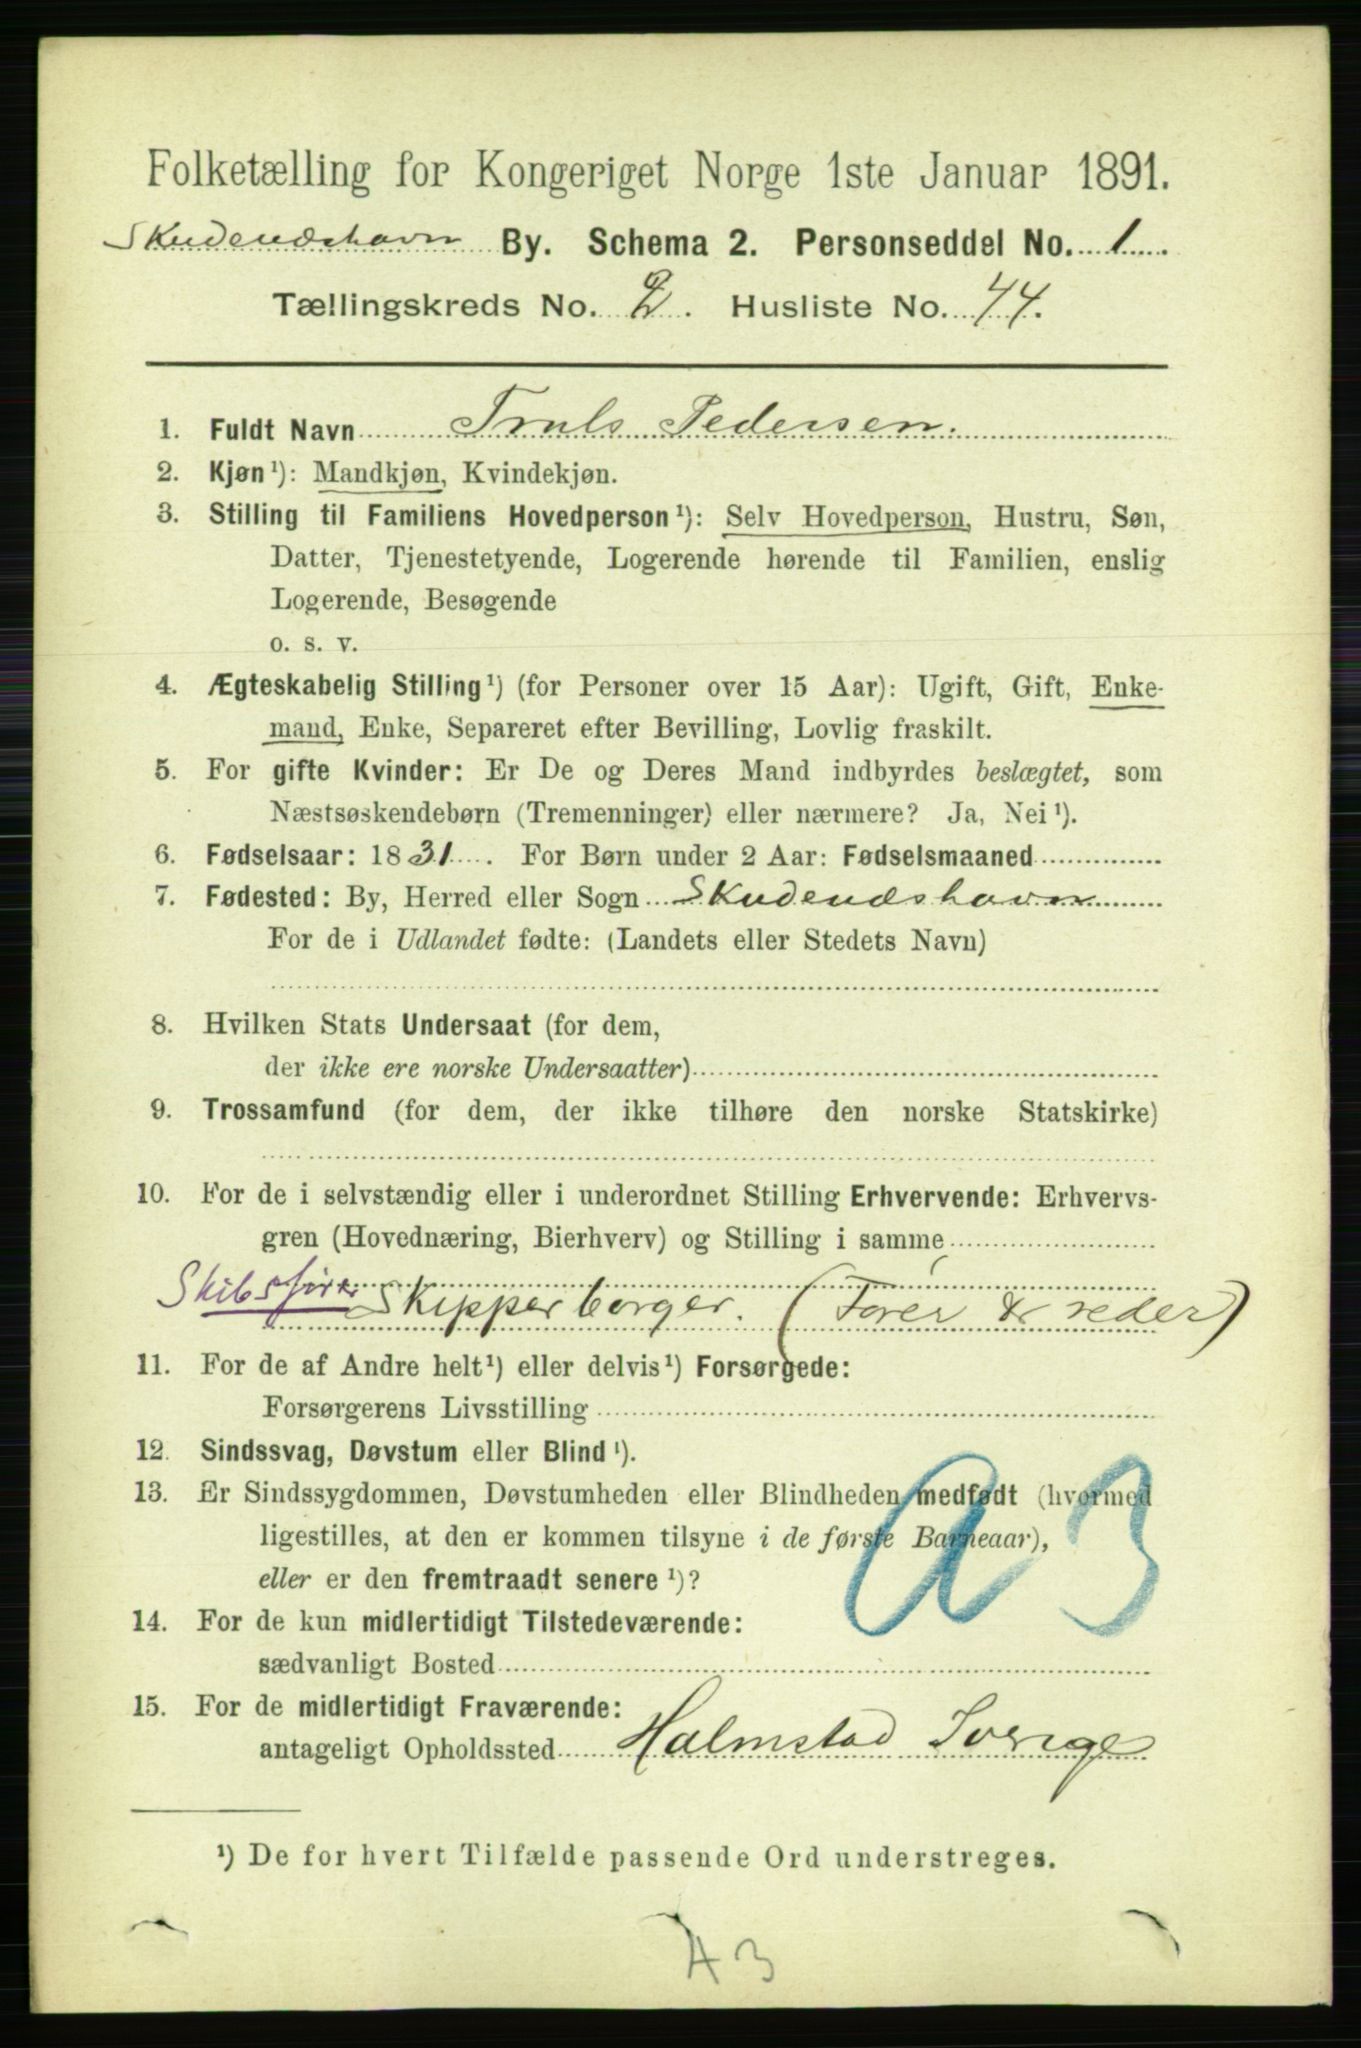 Folketælling for Kongeriget Norge 1ste Januar 1891.
Skudenæshavn By. Schema 2. Personseddel No. 1.
Tællingskreds No. 2. Husliste No. 44.
1. Fuldt Navn Truls Pedersen.
2. Kjøn ¹): Mandkjøn, Kvindekjøn.
3. Stilling til Familiens Hovedperson ¹): Selv Hovedperson, Hustru, Søn,
Datter, Tjenestetyende, Logerende hørende til Familien, enslig
Logerende, Besøgende
o. s. v.
4. Ægteskabelig Stilling ¹) (for Personer over 15 Aar): Ugift, Gift, Enke-
mand, Enke, Separeret efter Bevilling, Lovlig fraskilt.
5. For gifte Kvinder: Er De og Deres Mand indbyrdes beslægtet, som
Næstsøskendebørn (Tremenninger) eller nærmere? Ja, Nei ¹).
6. Fødselsaar: 1831. For Børn under 2 Aar: Fødselsmaaned
7. Fødested: By, Herred eller Sogn Skudenæshavn
For de i Udlandet fødte: (Landets eller Stedets Navn)
8. Hvilken Stats Undersaat (for dem,
der ikke ere norske Undersaatter)
9. Trossamfund (for dem, der ikke tilhøre den norske Statskirke)
10. For de i selvstændig eller i underordnet Stilling Erhvervende: Erhvervs-
gren (Hovednæring, Bierhverv) og Stilling i samme
Skibsfører Skipperborger. (Fører & reder)
11. For de af Andre helt ¹) eller delvis ¹) Forsørgede:
Forsørgerens Livsstilling
12. Sindssvag, Døvstum eller Blind ¹).
13. Er Sindssygdommen, Døvstumheden eller Blindheden medfødt (hvormed
ligestilles, at den er kommen tilsyne i de første Barneaar),
eller er den fremtraadt senere ¹)?
a 3
14. For de kun midlertidigt Tilstedeværende:
sædvanligt Bosted
15. For de midlertidigt Fraværende:
antageligt Opholdssted Halmstad Sverige
¹) De for hvert Tilfælde passende Ord understreges.
A 3